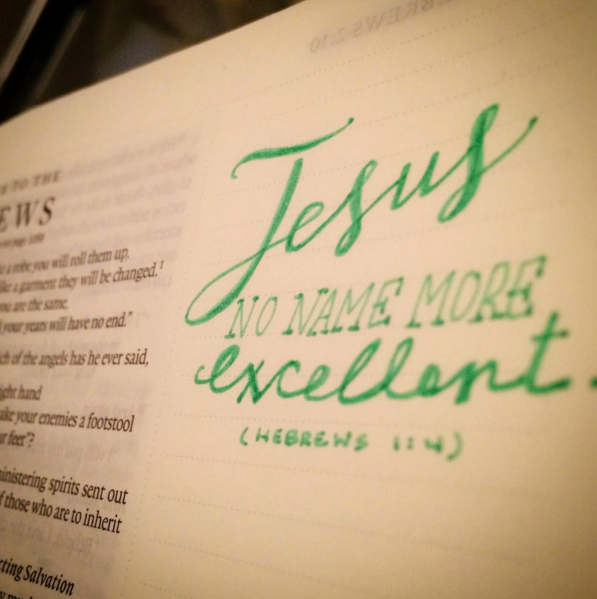 TO THE
EWS
a robe you will roll them up,
like a garment they will be changed.¹
you are the same,
your years will have no end."
of the angels has he ever said,
right hand
make your enemies a footstool
feet"?
ministering spirits sent out
of those who are to inherit
Salvation
Jesus
NO NAME MORE
excellent.
(HEBREWS 1:4)